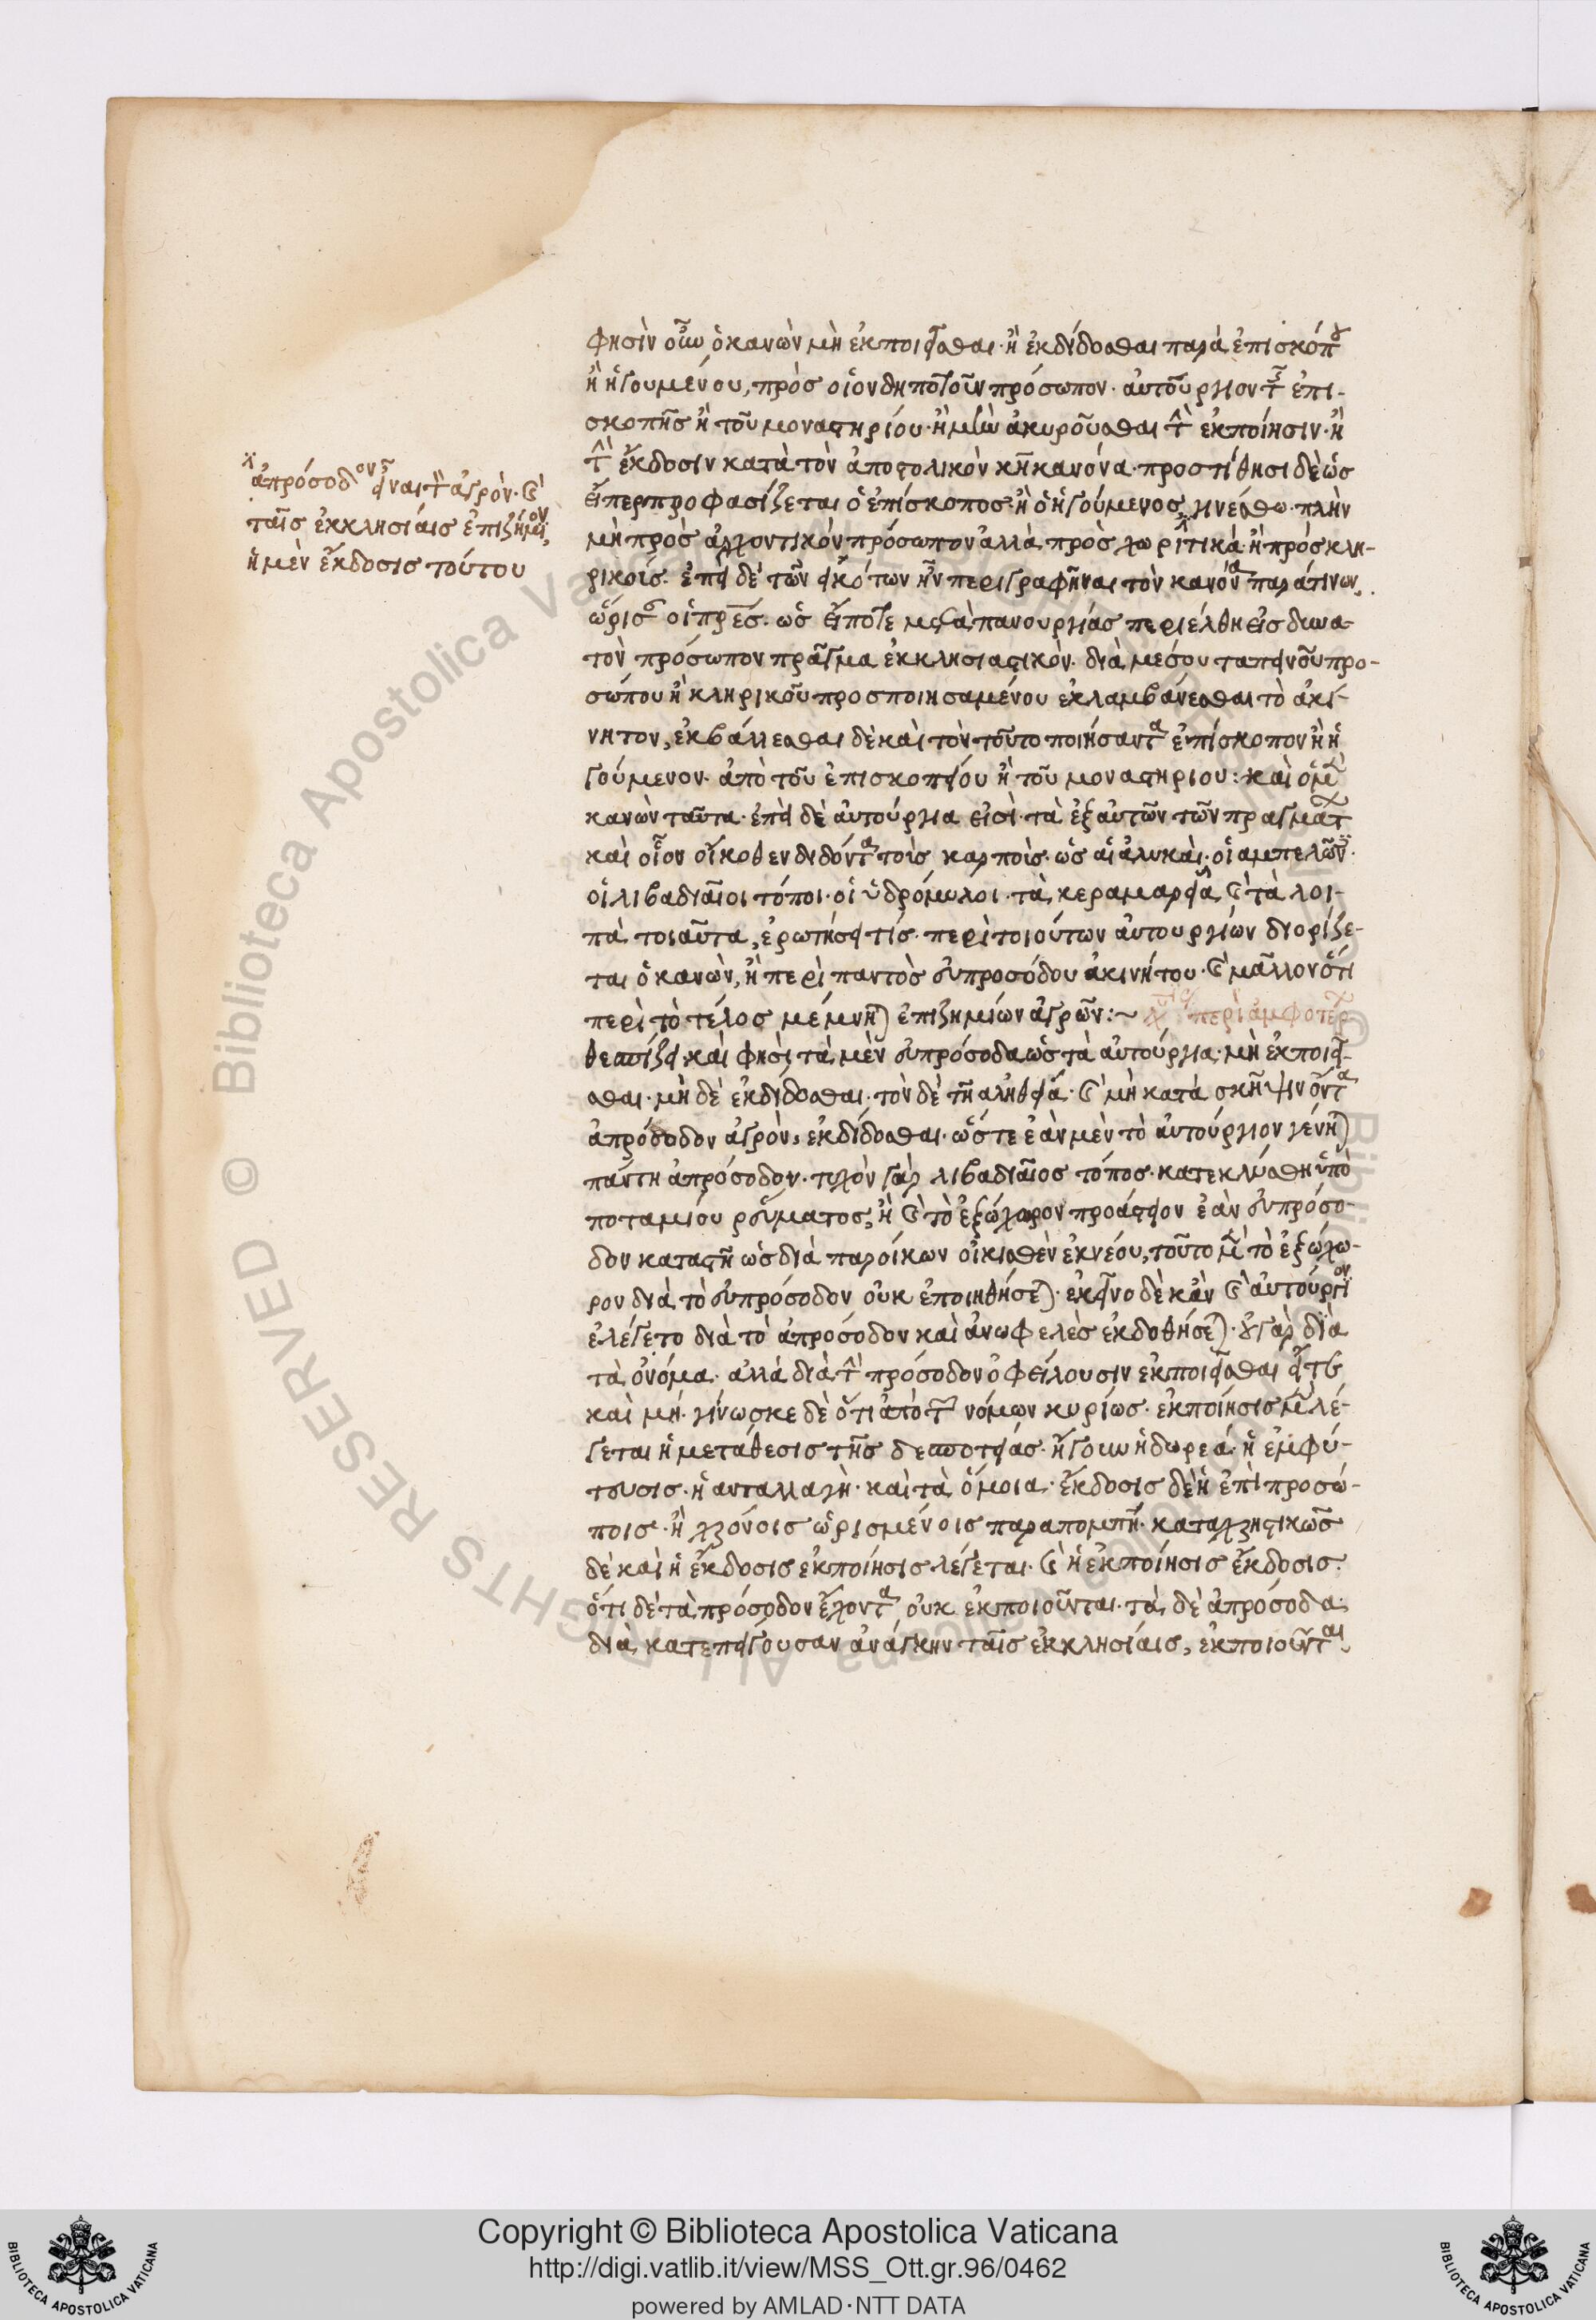 ἀπρόσοδον εἶναι τὸν ἀγρὸν· καὶ
ταῖς ἐκκλησίαις ἐπιζήμιον,
ἡ μὲν ἔκδοσις τούτου
φησὶν οὖν ὁ κανὼν μὴ ἐκποιεῖσθαι· ἢ ἐκδίδοσθαι παρὰ ἐπισκόπου
ἢ ἡγουμένου, πρὸς οἱονδήποτοῦν πρόσωπον· αὐτούργιον τῆς ἐπι-
σκοπῆς ἢ τοῦ μοναστηρίου· ἢ μὴν ἀκυροῦσθαι τὴν ἐκποίησιν· ἢ
τὴν ἔκδοσιν κατὰ τὸν ἀποστολικὸν κανόνα· προστίθησι δὲ ὡς
εἴπερ προφασίζεται ὁ ἐπίσκοπος· ἢ ὁ ἡγούμενος γινέσθω· πλὴν
μὴ πρὸς ἀρχοντικὸν πρόσωπον ἀλλὰ πρὸς χωριτικὰ· ἢ πρὸς κλη-
ρικοῖς· ἐπεὶ δὲ τῶν εἰκότων ἦν περιγραφῆναι τὸν κανόνα παρά τινων,
ὥρισαν οἱ πρες· ὡς εἴποτε μετὰ πανουργίας περιέλθῃ εἰς δυνα-
τὸν πρόσωπον πρᾶγμα ἐκκλησιαστικὸν· διὰ μέσου ταπεινοῦ προ-
σώπου ἢ κληρικοῦ προσποιησαμένου ἐκλαμβάνεσθαι τὸ ἀκί-
νητον, ἐκβάλλεσθαι δὲ καὶ τὸν τοῦτο ποιήσαντα ἐπίσκοπον ἢ ἡ
γούμενον· ἀπὸ τοῦ ἐπισκοπείου ἢ τοῦ μοναστηρίου: καὶ ὁ μὲν
κανὼν ταῦτα· ἐπεὶ δὲ αὐτούργια εἰσὶ· τὰ ἐξ αὐτῶν τῶν πραγμάτων
καὶ οἷον οἴκοθεν διδόντα τοῖς καρποῖς· ὡς αἱ ἁλυκαὶ· οἱ ἀμπελῶνες·
οἱ λιβαδιαῖοι τόποι· οἱ ὑδρόμυλοι· τὰ κεραμαρεῖα καὶ τὰ λοι-
πὰ τοιαῦτα, ἐρωτήσει τίς· περὶ τοιούτων αὐτουργίων διορίζε-
ται ὁ κανὼν, ἢ περὶ παντὸς εὐπροσόδου ἀκινήτου· καὶ μᾶλλον ὅτι
περὶ τὸ τέλος μέμνηται ἐπιζημίων ἀγρῶν:~ περὶ ἀμφοτέρων
θεσπίζει καὶ φησὶ, τὰ μὲν εὐπρόσοδα ὡς τὰ αὐτούργια· μὴ ἐκποιεῖ-
σθαι· μὴ δὲ ἐκδίδοσθαι· τὸν δὲ τῇ ἀληθείᾳ· καὶ μὴ κατὰ σκῆψιν ὄντα
ἀπρόσοδον ἀγρὸν, ἐκδίδοσθαι· ὥστε ἐὰν μὲν τὸ αὐτούργιον γένηται
πάντη ἀπρόσοδον· τυχὸν γὰρ λιβαδιαῖος τόπος· κατεκλύσθη ὑπὸ
ποταμίου ῥεύματος, ἢ καὶ τὸ ἐξώχωρον προάστειον ἐὰν εὐπρόσο-
δον καταστῇ ὡς διὰ παροίκων οἰκισθὲν ἐκ νέου, τοῦτο μὲν τὸ ἐξώχω-
ρον διὰ τὸ εὐπρόσοδον οὐκ ἐποιηθήσεται· ἐκεῖνο δὲ κἂν καὶ αὐτούργιον
ἐλέγετο διὰ τὸ ἀπρόσοδον καὶ ἀνωφελὲς ἐκδοθήσεται· οὐ γὰρ διὰ
τὰ ὀνόμα· ἀλλὰ διὰ τὴν πρόσοδον ὀφείλουσιν ἐκποιεῖσθαι
καὶ μή· γίνωσκε δὲ ὅτι ἀπὸ τῶν νόμων κυρίως· ἐκποίησις μὲν λέ-
γεται ἡ μετάθεσις τῆς δεσποτείας· ἤγουν ἡ δωρεά· ἡ ἐμφύ-
τευσις· ἡ ἀνταλλαγὴ· καὶ τὰ ὅμοια· ἔκδοσις δὲ ἡ ἐπὶ προσώ-
ποις· ἢ χρόνοις ὡρισμένοις παραπομπή· καταχρηστικῶς
δὲ καὶ ἡ ἔκδοσις ἐκποίησις λέγεται· καὶ ἡ ἐκποίησις ἔκδοσις.
ὅτι δὲ τὰ πρόσοδον ἔχοντα οὐκ ἐκποιοῦνται· τὰ δὲ ἀπρόσοδα
διὰ κατεπείγουσαν ἀνάγκην ταῖς ἐκκλησίαις, ἐκποιοῦνται
© Biblioteca Apostolica Vaticana ALL RIGHTS RESERVED
Copyright © Biblioteca Apostolica Vaticana
http://digi.vatlib.it/view/MSS_Ott.gr.96/0462
powered by AMLAD·NTT DATA
BIBLIOTECA APOSTOLICA VATICANA
BIBLIOTECA APOSTOLICA VATICANA